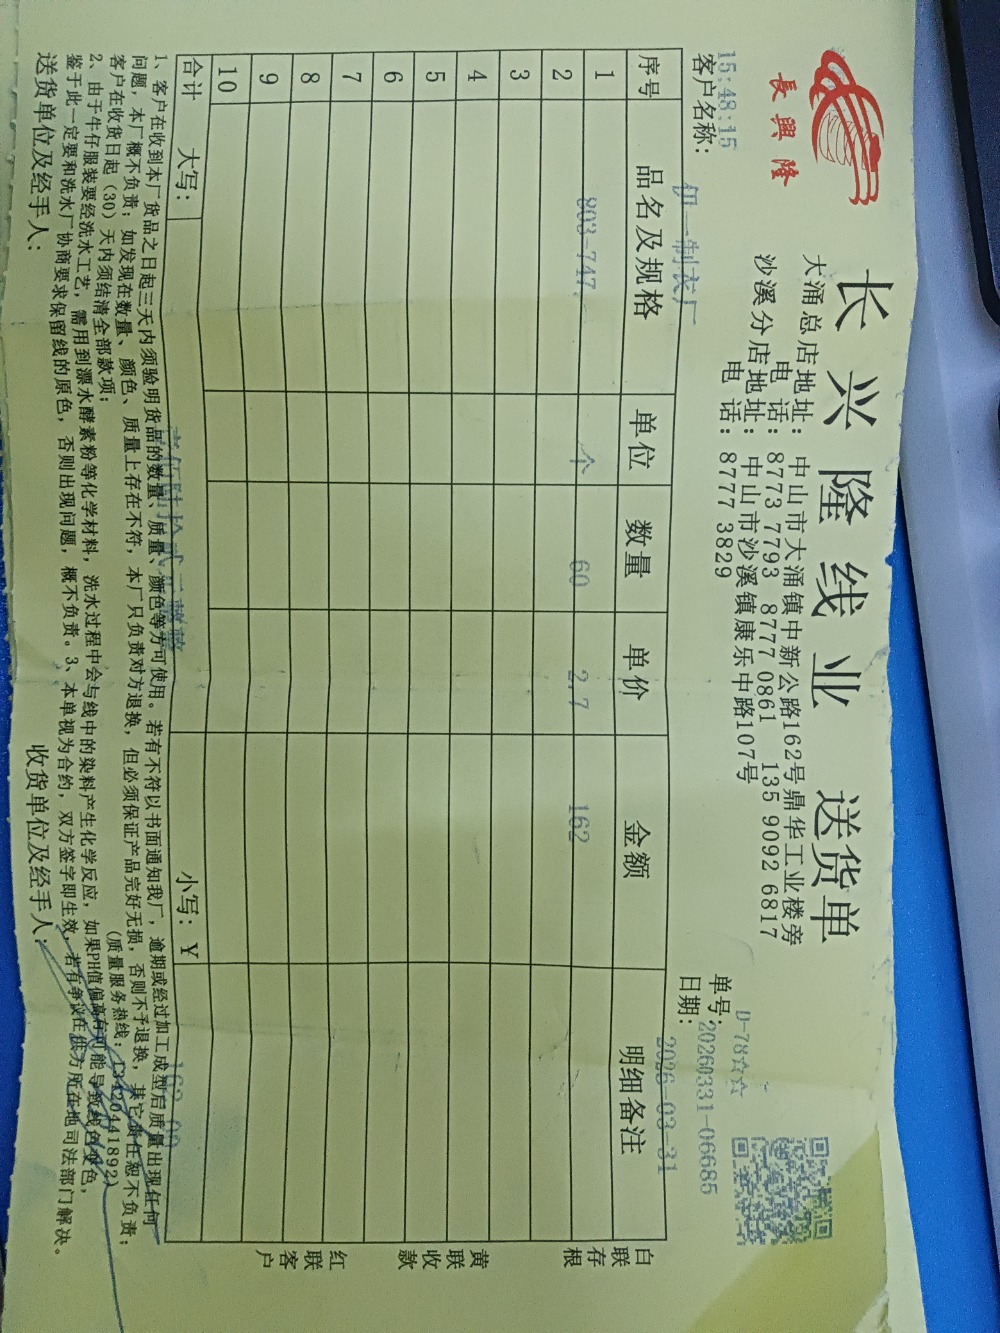 長興隆
长兴隆线业 送货单
大涌总店地址：中山市大涌镇中新公路162号鼎华工业楼旁
电话：8773 7793 8777 0861 135 9092 6817
沙溪分店地址：中山市沙溪镇康乐中路107号
电话：8777 3829
D-78☆☆
15:48:15
单号：20260331-06685
客户名称：伊一制衣厂
日期：2026-03-31
序号 品名及规格 单位 数量 单价 金额 明细备注
1 803-747 个 60 2.7 162
2
3
4
5
6
7
8
9
10
合计 大写：壹佰陆拾贰元整 小写：￥ 162.00
白联存根
黄联收款
红联客户
1、客户在收到本厂货品之日起三天内须验明货品的数量、质量、颜色等方可使用。若有不符以书面通知我厂，逾期或经过加工成型后质量出现任何
问题，本厂概不负责；如发现在数量、颜色、质量上存在不符，本厂只负责对方退换，但必须保证产品完好无损，否则不予退换，其它责任恕不负责；
客户在收货日起（30）天内须结清全部款项；（质量服务热线：13420441892）
2、由于牛仔服装要经洗水工艺，需用到漂水酵素粉等化学材料，洗水过程中会与线中的染料产生化学反应，如果PH值偏高有可能导致线色变色，
鉴于此一定要和洗水厂协商要求保留线的原色，否则出现问题，概不负责。3、本单视为合约，双方签字即生效，若有争议在供方所在地司法部门解决。
送货单位及经手人： 收货单位及经手人：